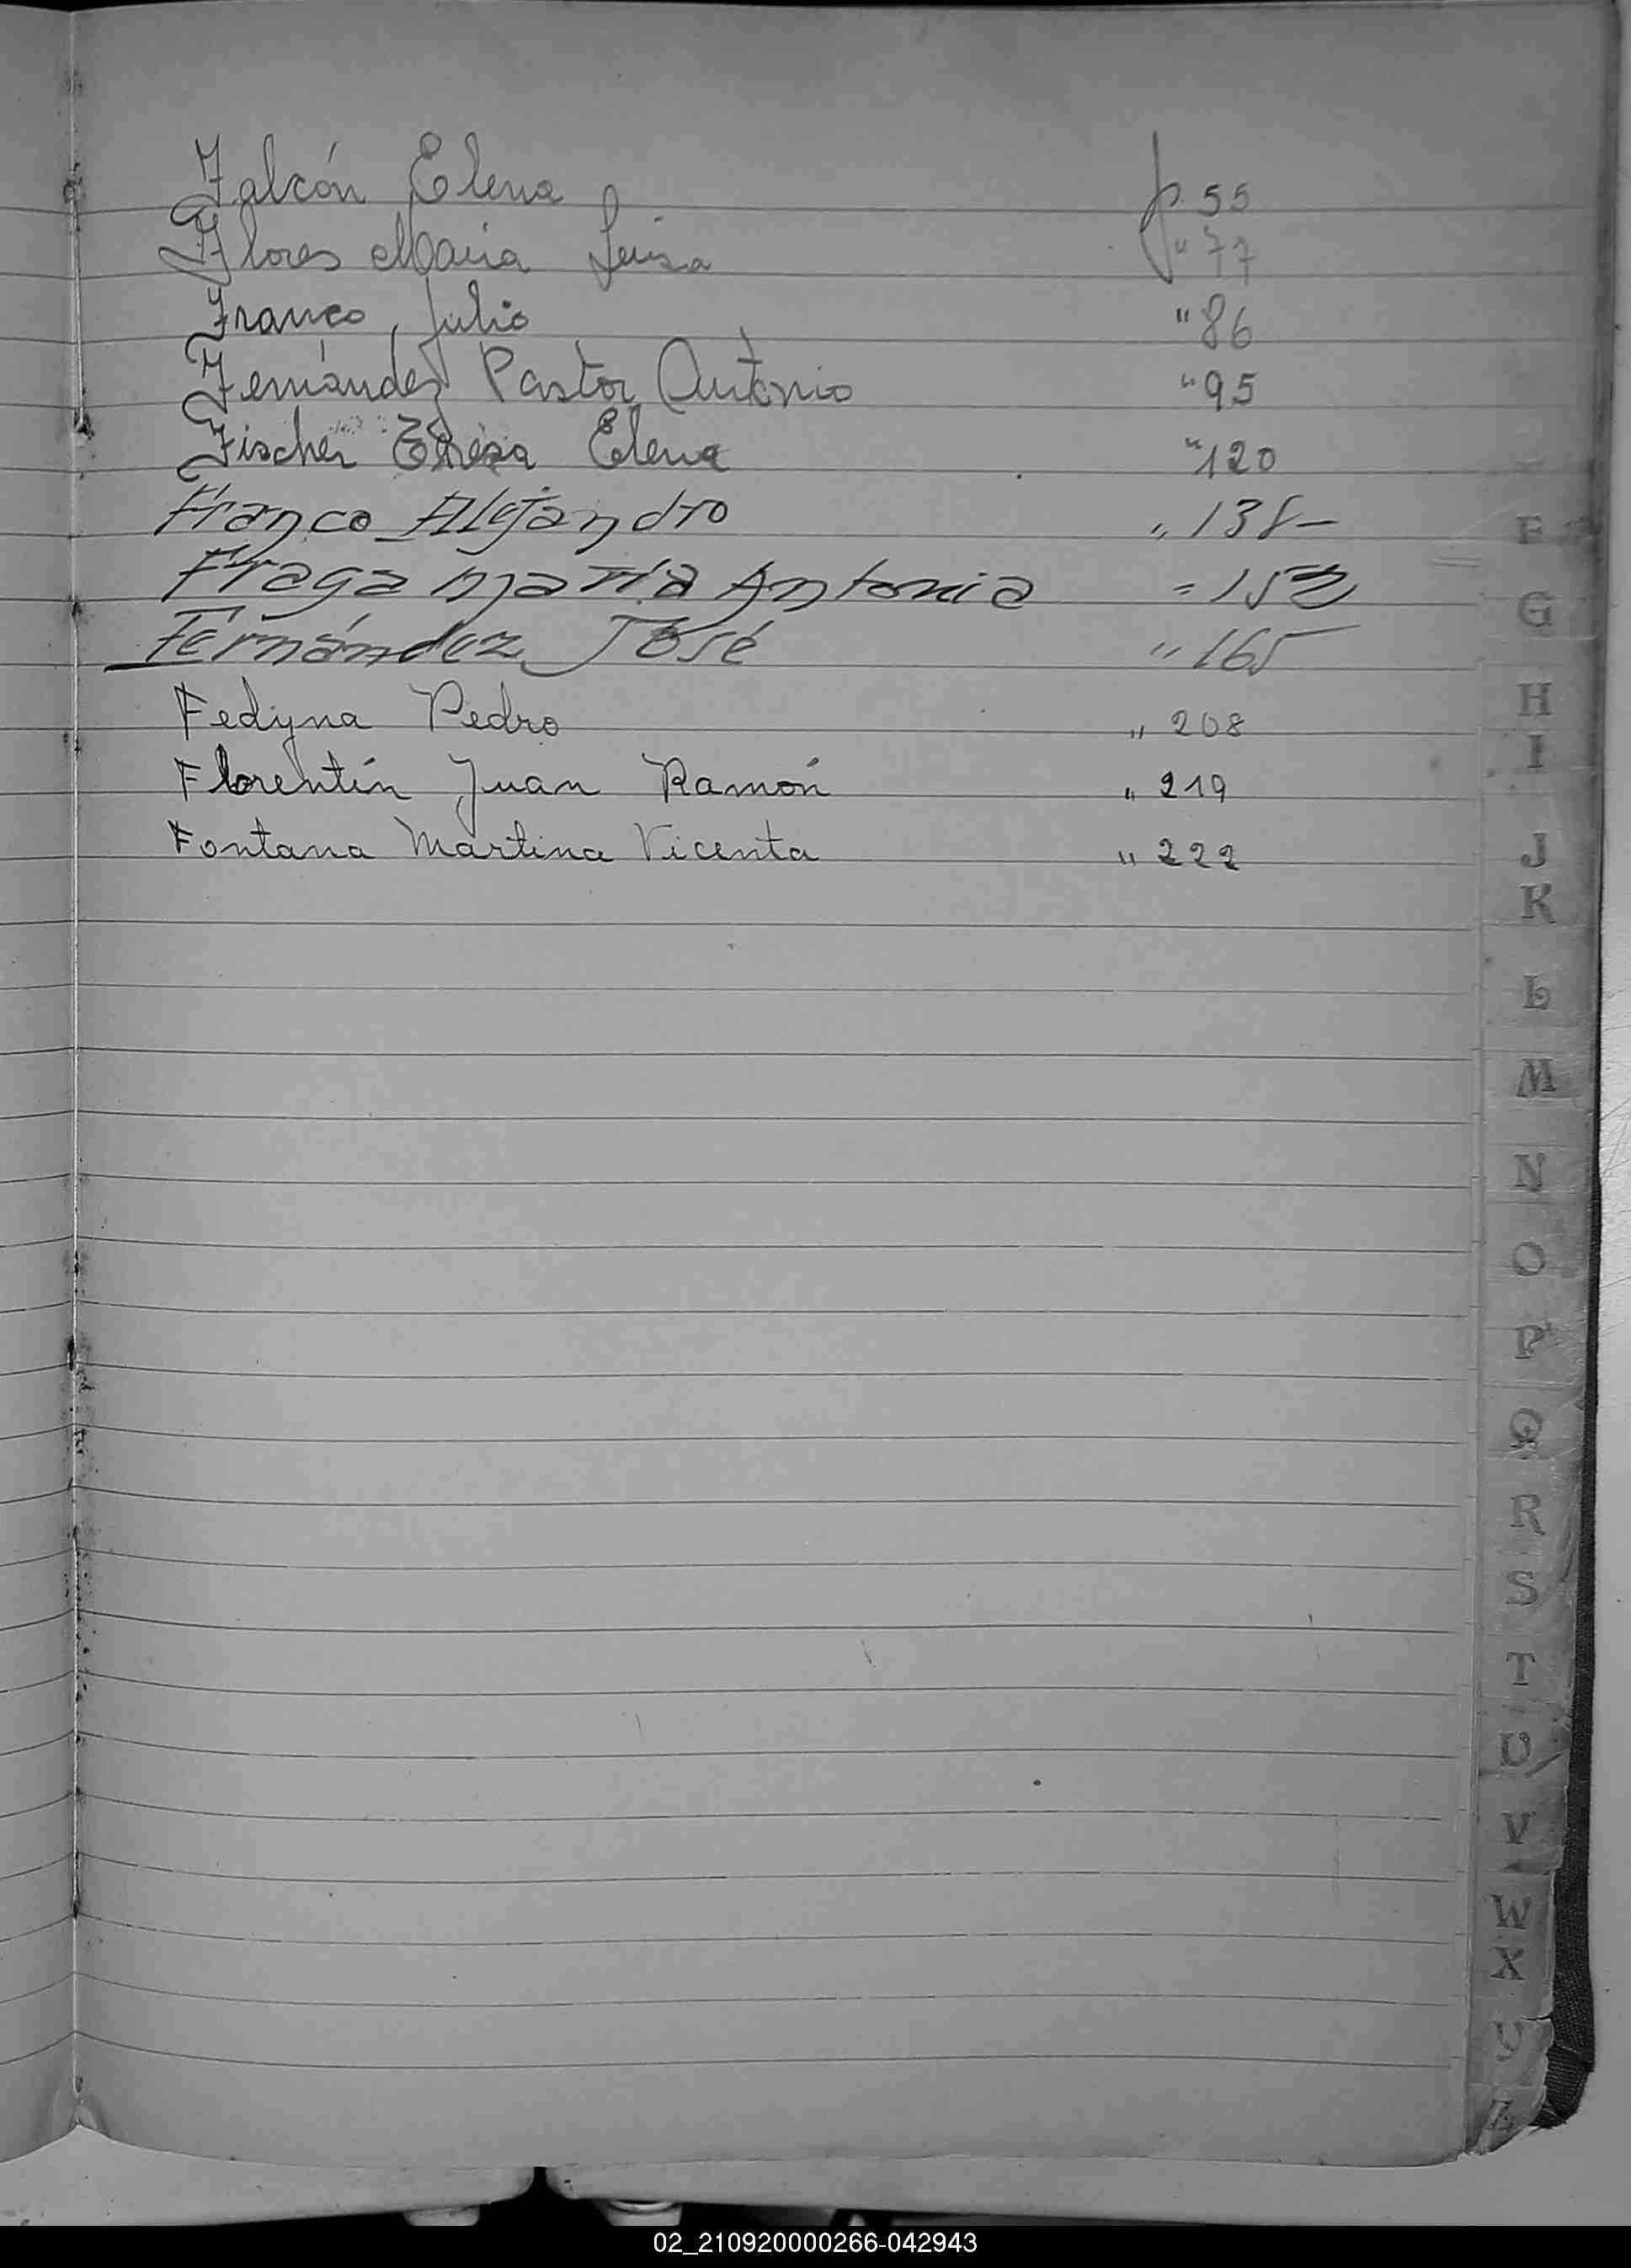 Falcón Elena p 55
Flores María Luisa " 77
Franco, Julio " 86
Fernández Pastor Antonio " 95
Fischer Teresa Elena " 120
Franco Alejandro " 138-
Fraga María Antonia "
Fernández José " 165
Fedyna Pedro " 208
Florentín Juan Ramón " 219
Fontana Martina Vicenta " 222
F
G
H
I
J
K
L
M
N
O
P
Q
R
S
T
U
V
W
X
Y
Z
02_210920000266-042943